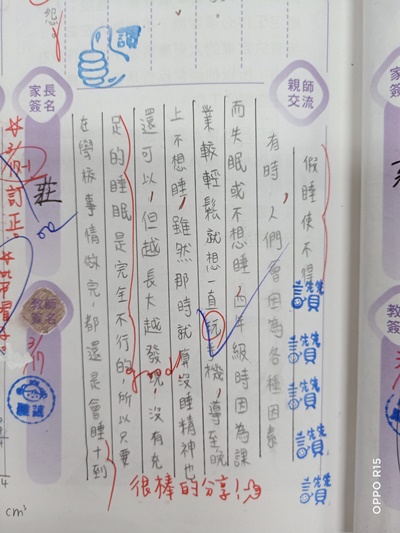 怨
讚
親師
交流
家長
簽名
教師
簽名
3/17
假睡使不得
有時,人們會因為各種因素
而失眠或不想睡,四年級時因為課
業較輕鬆就想一直玩手機,導至晚
上不想睡,雖然那時就算沒睡精神也
還可以,但越長大越發現,沒有充
足的睡眠是完全不行的,所以只要
在學校事情做完,都還是會睡十到
讚讚
讚讚
讚讚
讚讚
讚讚
很棒的分享!
訂正
莊
cm³
OPPO R15